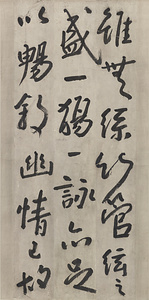 雖無絲竹管弦之
盛一觴一詠亦足
以暢敘幽情已故